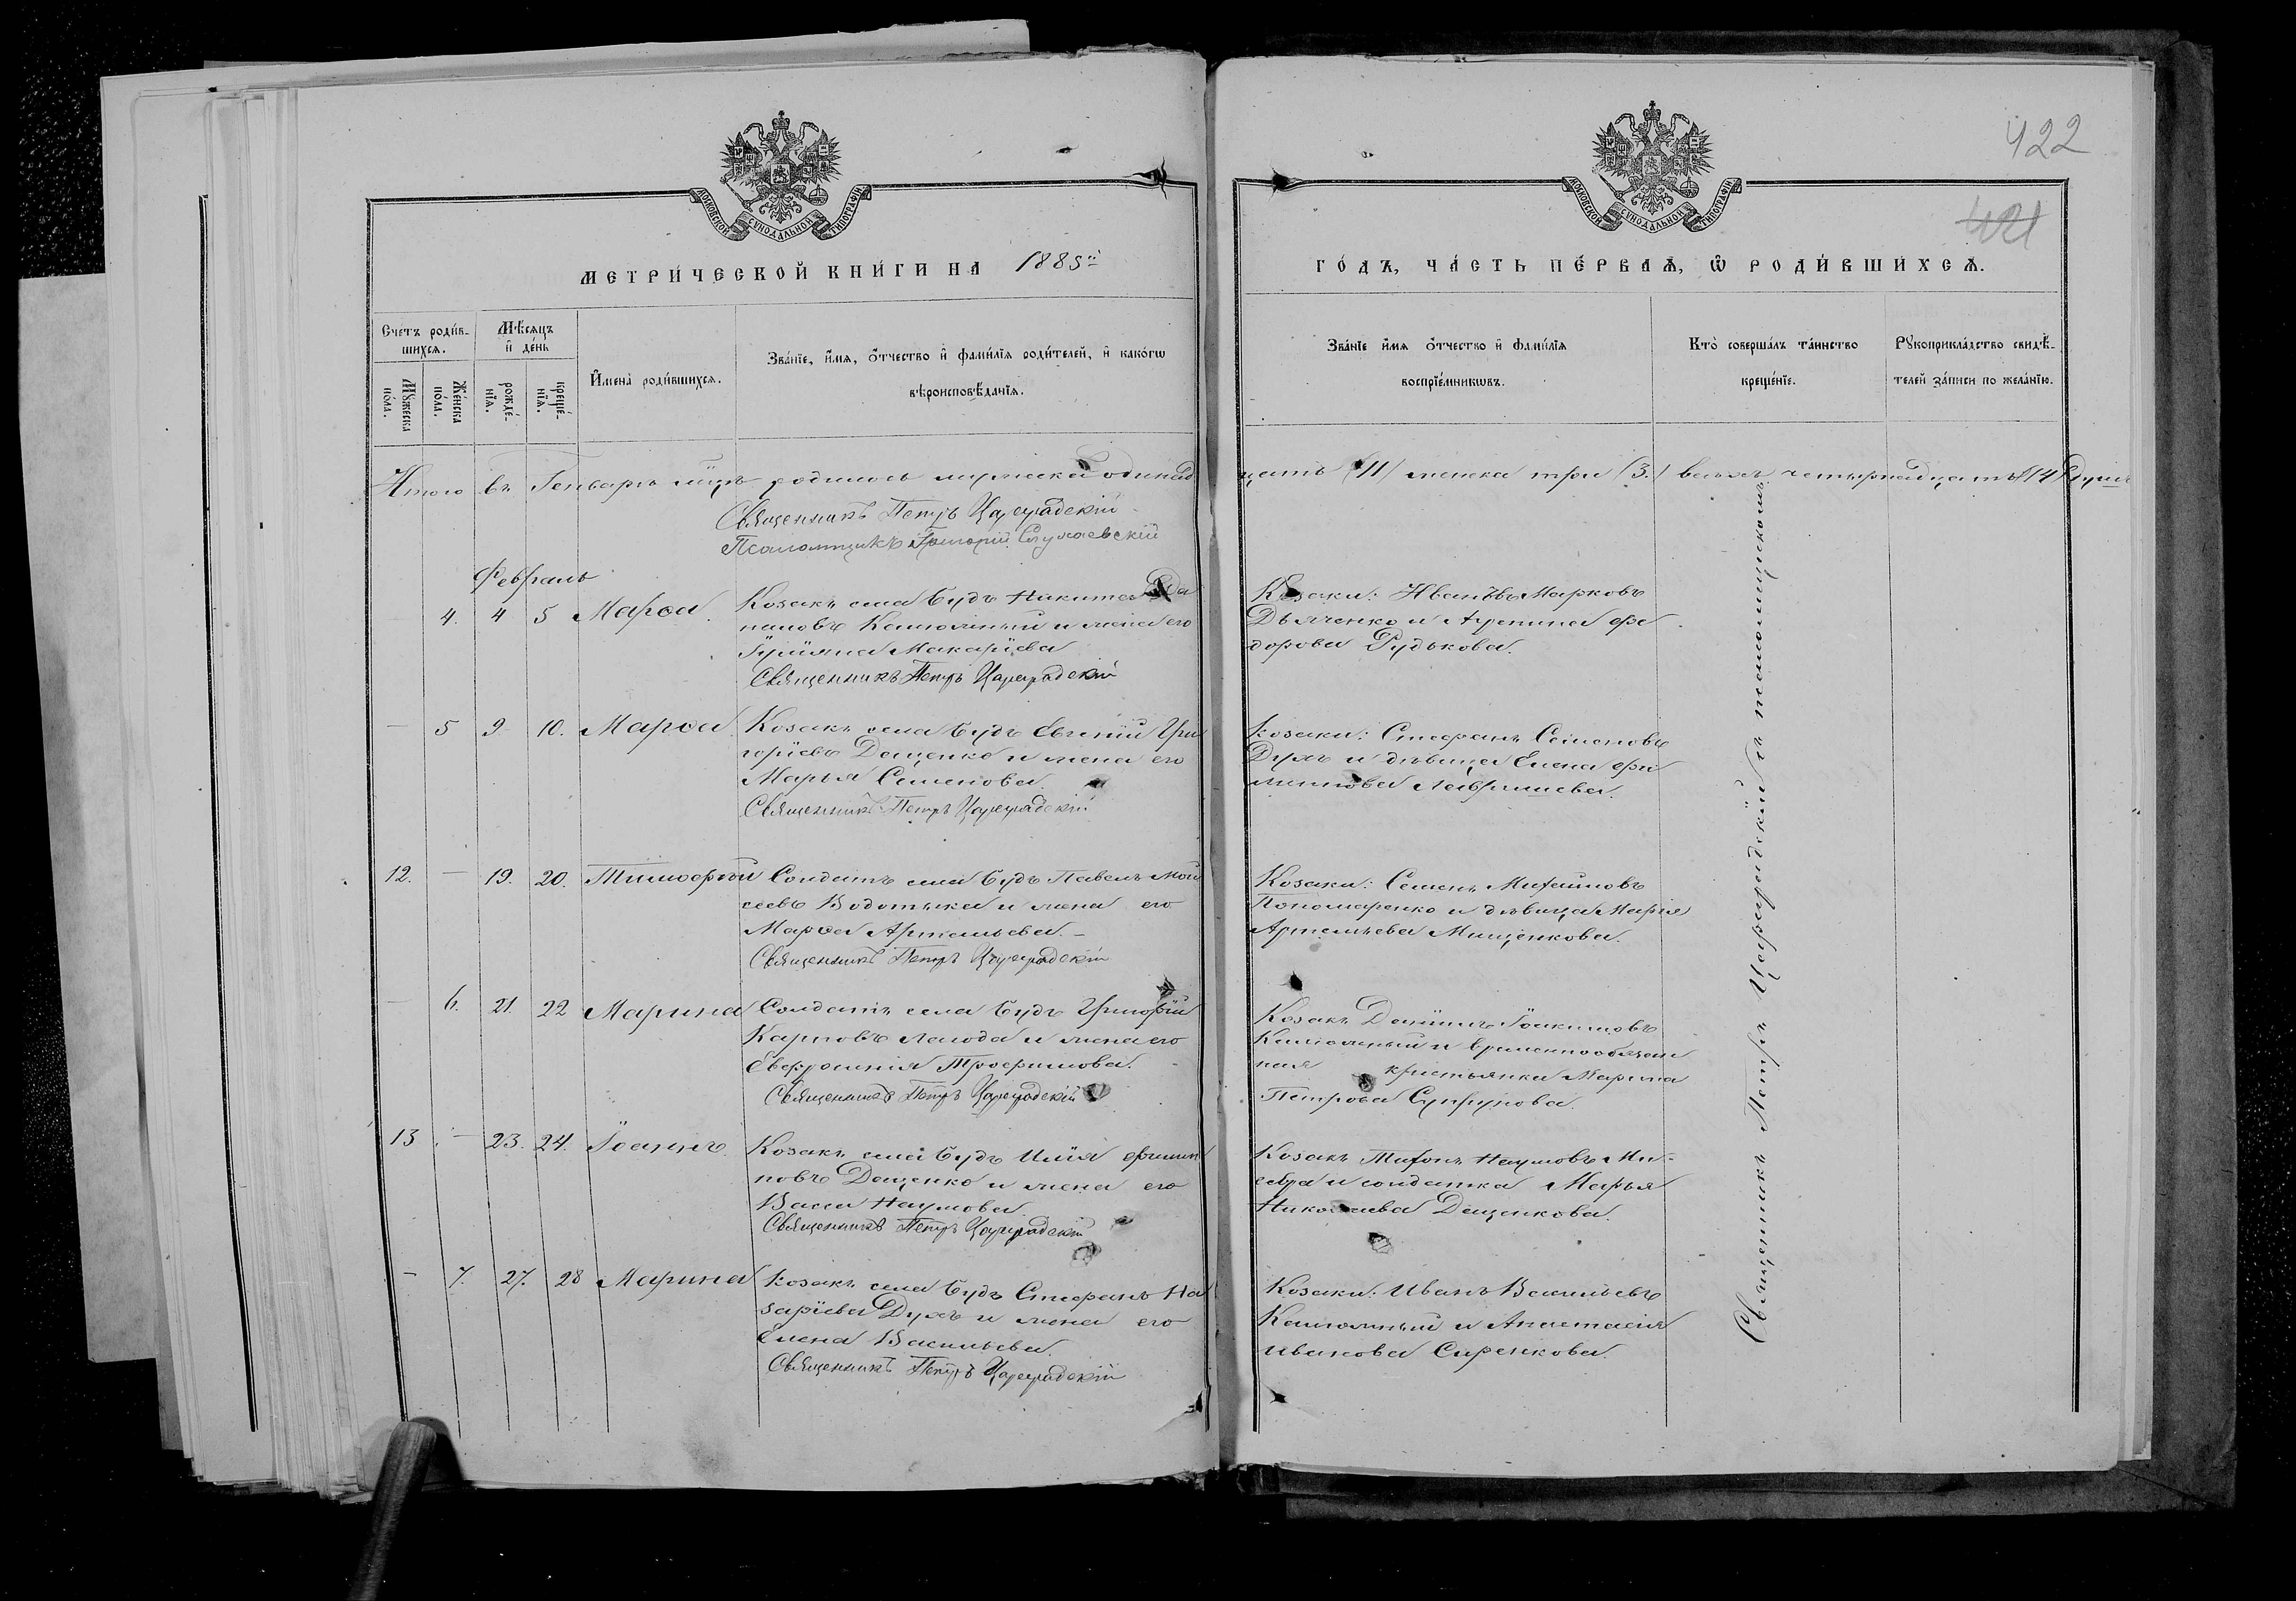 422
421
МОСКОВСКОЙ СѴНОДАЛЬНОЙ ТИПОГРАФІИ
МОСКОВСКОЙ СѴНОДАЛЬНОЙ ТИПОГРАФІИ
МЕТРИ́ЧЕСКОЙ КНИ́ГИ НА 1885й
ГО́ДЪ, ЧА́СТЬ ПЕ́РВАѦ, Ѡ РОДИ́ВШИХСѦ.
Счетъ роди́в-
шихсѧ.
Мꙋжеска по́ла.
Же́нска по́ла.
Мѣ́сѧцъ и҆ де́нь
рожде́-
нїѧ.
креще́-
нїѧ.
И҆мена̀ роди́вшихсѧ.
Зва́нїе, и҆́мѧ, о҆́тчество и҆ фами́лїѧ роди́телей, и҆ како́гѡ
вѣроисповѣ́данїѧ.
Зва́нїе и҆́мѧ о҆́тчество и҆ фами́лїѧ
воспрїе́мникѡвъ.
Кто̀ соверша́лъ та́инство
креще́нїе.
Рꙋкоприкла́дство свидѣ́-
телей за́писи по жела́нїю.
Итого въ Генварѣ м͠цѣ родилось мужеска одинад
цать (11) женска три (3.) всѣхъ четырнадцать (14) душъ
Священникъ Петръ Цареградскій
Псаломщикъ Григорій
Февраль
4. 4 5 Марѳа.
Козакъ села Будъ Никита
пановъ и жена его
Іуліяна Макаріева
Священникъ Петръ Цареградскій
Козаки: Иванъ Марковъ
Дьяченко и Агрипина Фе
дорова Рудькова.
— 5 9 10. Марѳа.
Козакъ села Будъ Евгеній Гри
горіевъ Дащенко и жена его
Марья Семенова.
Священникъ Петръ Цареградскій
Козаки: Стефанъ Семеновъ
Духъ и дѣвица Елена Фи
липпова
12. — 19. 20. Тимоѳей
Солдатъ села Будъ Павелъ Мои
сеевъ Водотыка и жена его
Марѳа Артемьева. —
Священникъ Петръ Цареградскій
Козаки: Семенъ Михайловъ
Пономаренко и дѣвица Марія
Артемьева Мищенкова.
— 6. 21. 22 Марина
Солдатъ села Будъ Григорій
Карповъ Лагода и жена его
Евфросинія Трофимова.
Священникъ Петръ Цареградскій
Козакъ Даніилъ Іоакимовъ
и временнообязан
ная крестьянка Марина
Петрова Супрунова.
13 — 23. 24. Іоаннъ.
Козакъ села Будъ Илія Филип
повъ Дащенко и жена его
Васса Наумова.
Священникъ Петръ Цареградскій
Козакъ Тихонъ Наумовъ
и солдатка Марья
Николаева Дащенкова.
— 7. 27. 28 Марина
Козакъ села Будъ Стефанъ На
заріевъ Духъ и жена его
Елена Васильева.
Священникъ Петръ Цареградскій
Козаки: Иванъ Васильевъ
и Анастасія
Иванова Сиренкова.
Священникъ Петръ Цареградскій съ псаломщикомъ